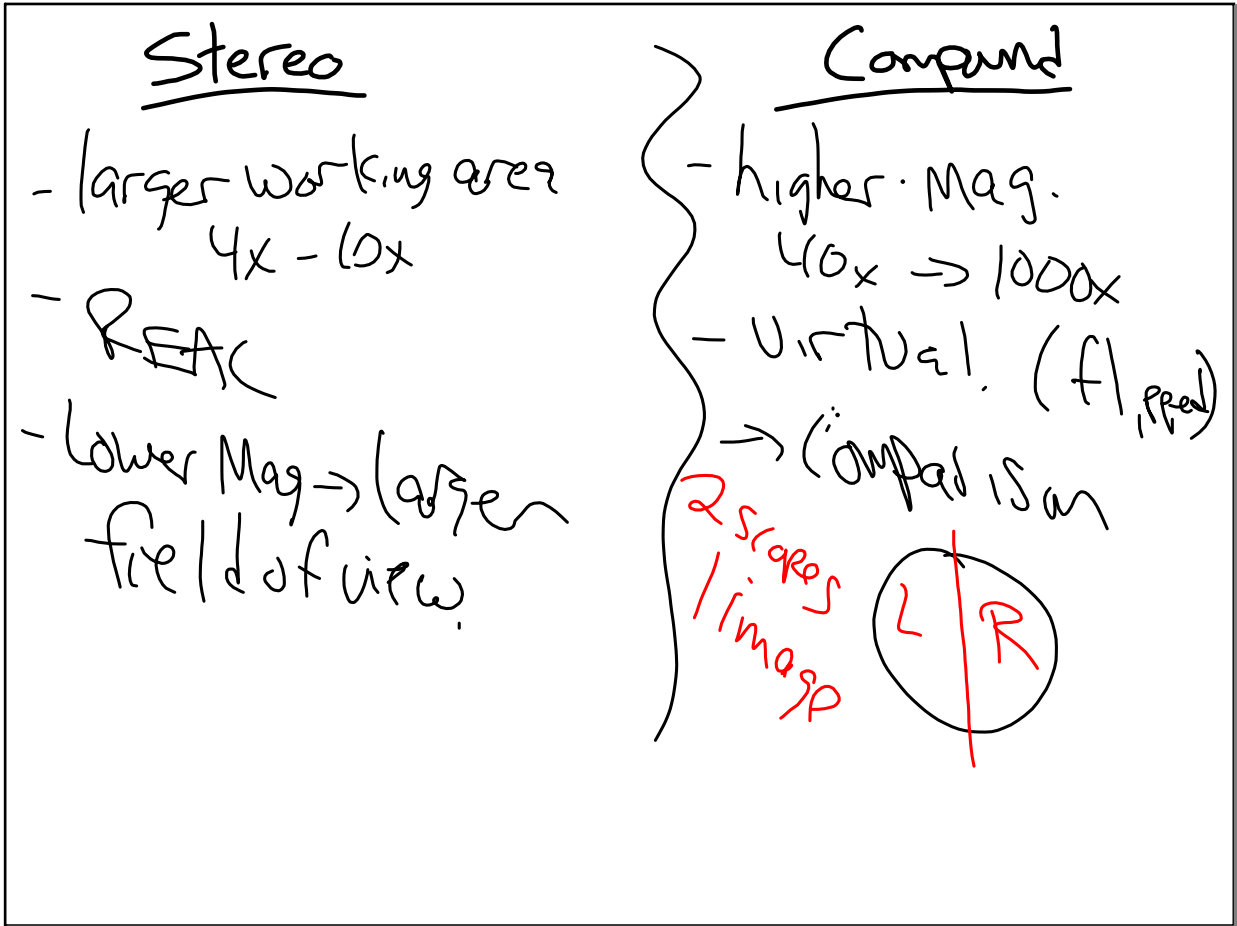 Stereo
- larger working area
4x - 10x
- REAL
- Lower Mag → larger
field of view.
Compound
- higher. Mag.
40x → 1000x
- Virtual. (flipped)
→ Comparison
2 scopes
1 image
L R